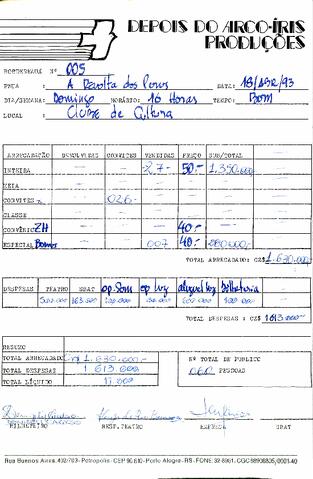 DEPOIS DO ARCO-ÍRIS
PRODUÇÕES
BORDERRAUX Nº 005
PEÇA : A Revolta dos Perus DATA: 18/ABR/93
DIA/SEMANA: Domingo HORÁRIO: 16 Horas TEMPO: BOM
LOCAL :
ARRECADAÇÃO DEVOLVIDAS CONVITES VENDIDAS PREÇO SUB/TOTAL
INTEIRA 27- 50.- 1.350.000-
MEIA
CONVITES 026-
CLASSE
CONVÊNIO ZH 40.-
ESPECIAL Bonus 007 40.- 280.000,-
TOTAL ARRECADADO: CZ$ 1.630.000,-
DESPESAS TEATRO SBAT op. Som op luz aluguel luz Bilheteria
163.000
TOTAL DESPESAS : CZ$ 1613.000-
RESUMO
TOTAL ARRECADADO 1.630.000,-
TOTAL DESPESAS 1 613.000-
TOTAL LÍQUIDO 17.000
Nº TOTAL DE PÚBLICO
060 PESSOAS
BILHETEIRO RESP.TEATRO EMPRESA SBAT
Rua Buenos Aires, 402/703 - Petrópolis - CEP 90.610 - Porto Alegre - RS - FONE: 32-8961 -